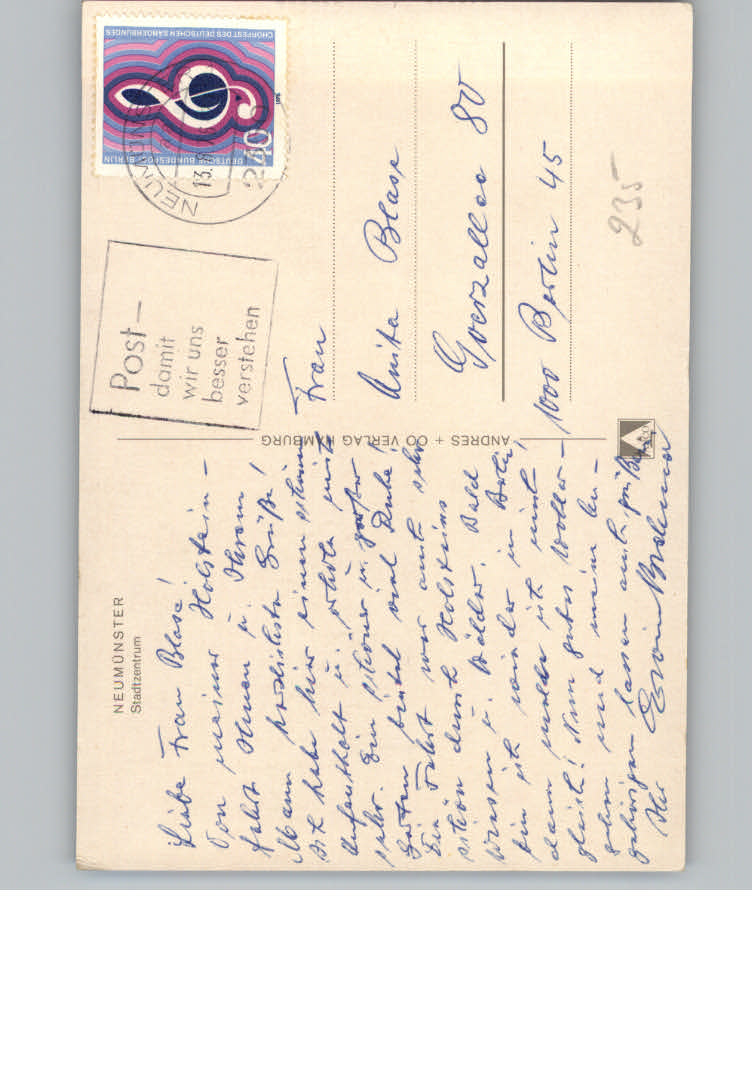 NEUMÜNSTER
Stadtzentrum
Liebe Frau Blase!
Von meiner Holstein-
fahrt Ihnen u. Ihrem
Mann herzlichste Grüße!
Ich habe hier einen schönen
Aufenthalt u. erhole mich
sehr. Ein schöner u. großer
Garten bietet viel Ruhe!
Die Fahrt war auch sehr
schön durch Holsteins
Wiesen u. Wälder. Bald
bin ich wieder in Berlin
dann melde ich mich
gleich! Nun gutes Wohler-
gehen und meine An-
gehörigen lassen auch grüßen
Ihr Erwin
ANDRES + CO VERLAG HAMBURG
Post-
damit
wir uns
besser
verstehen
NEUMÜNSTER
13.
CHORFEST DES DEUTSCHEN SÄNGERBUNDES
1976
40
DEUTSCHE BUNDESPOST BERLIN
Frau
Anita Blase
Goerzallee 80
1000 Berlin 45
235